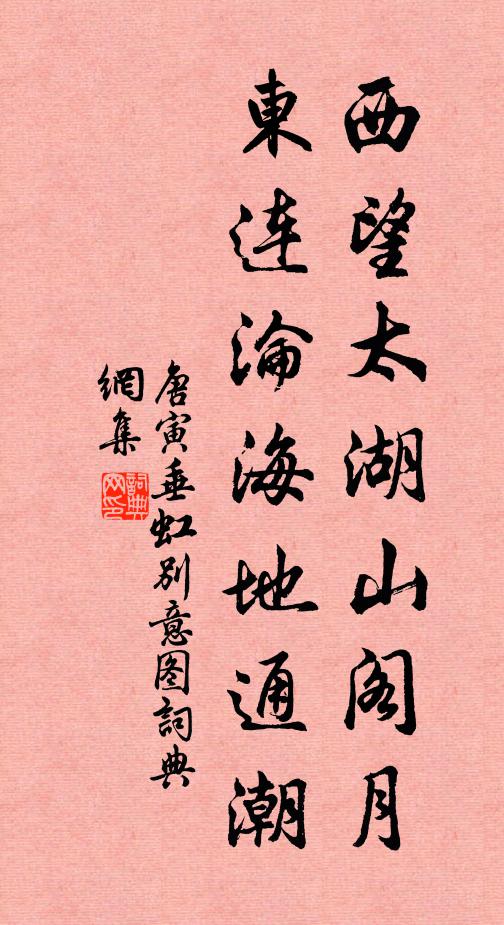 西望太湖山阁月
東連淪海地通潮
唐寅垂虹別意图詞典
網集
詞典
网印